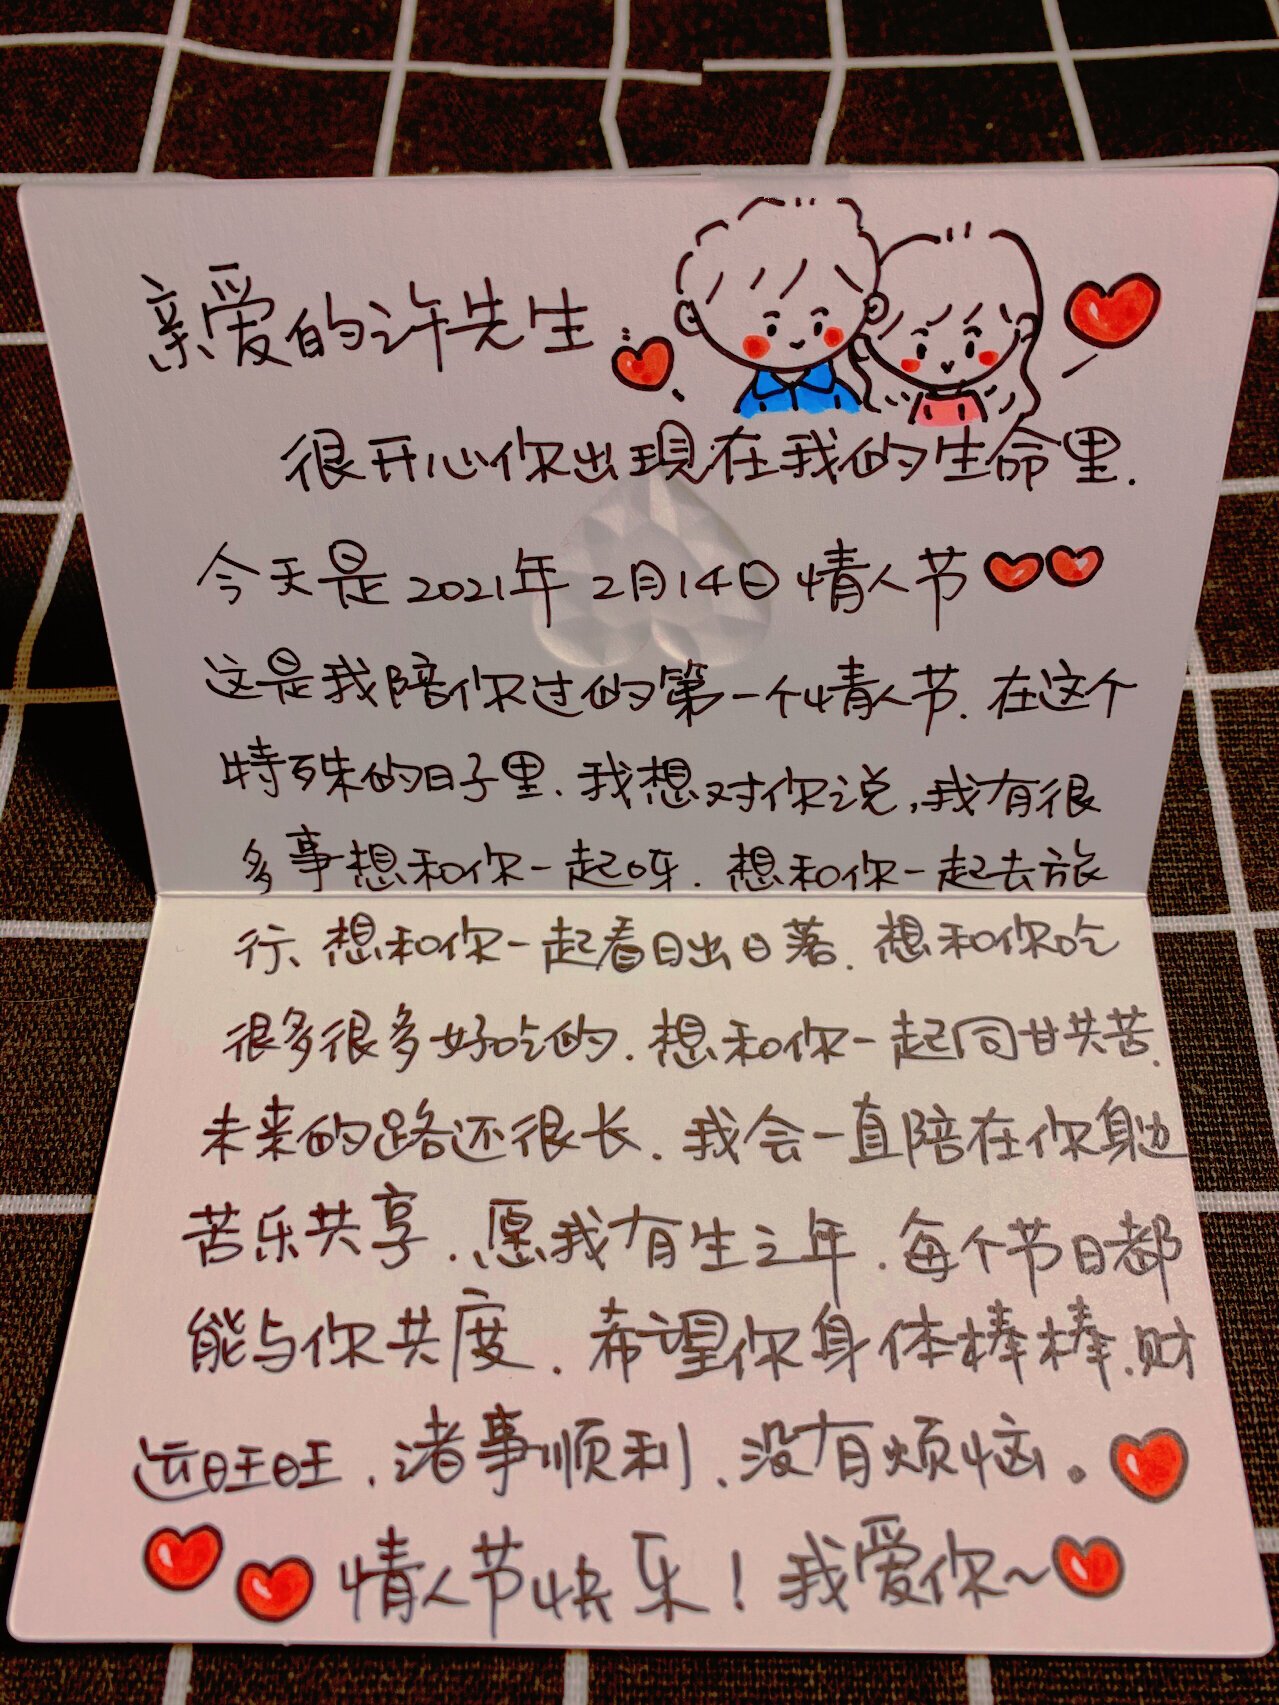 亲爱的许先生
很开心你出现在我的生命里.
今天是2021年2月14日情人节
这是我陪你过的第一个情人节.在这个
特殊的日子里.我想对你说,我有很
多事想和你一起呀.想和你一起去旅
行、想和你一起看日出日落.想和你吃
很多很多好吃的.想和你一起同甘共苦.
未来的路还很长.我会一直陪在你身边
苦乐共享.愿我有生之年.每个节日都
能与你共度.希望你身体棒棒.财
运旺旺.诸事顺利、没有烦恼。
情人节快乐!我爱你~